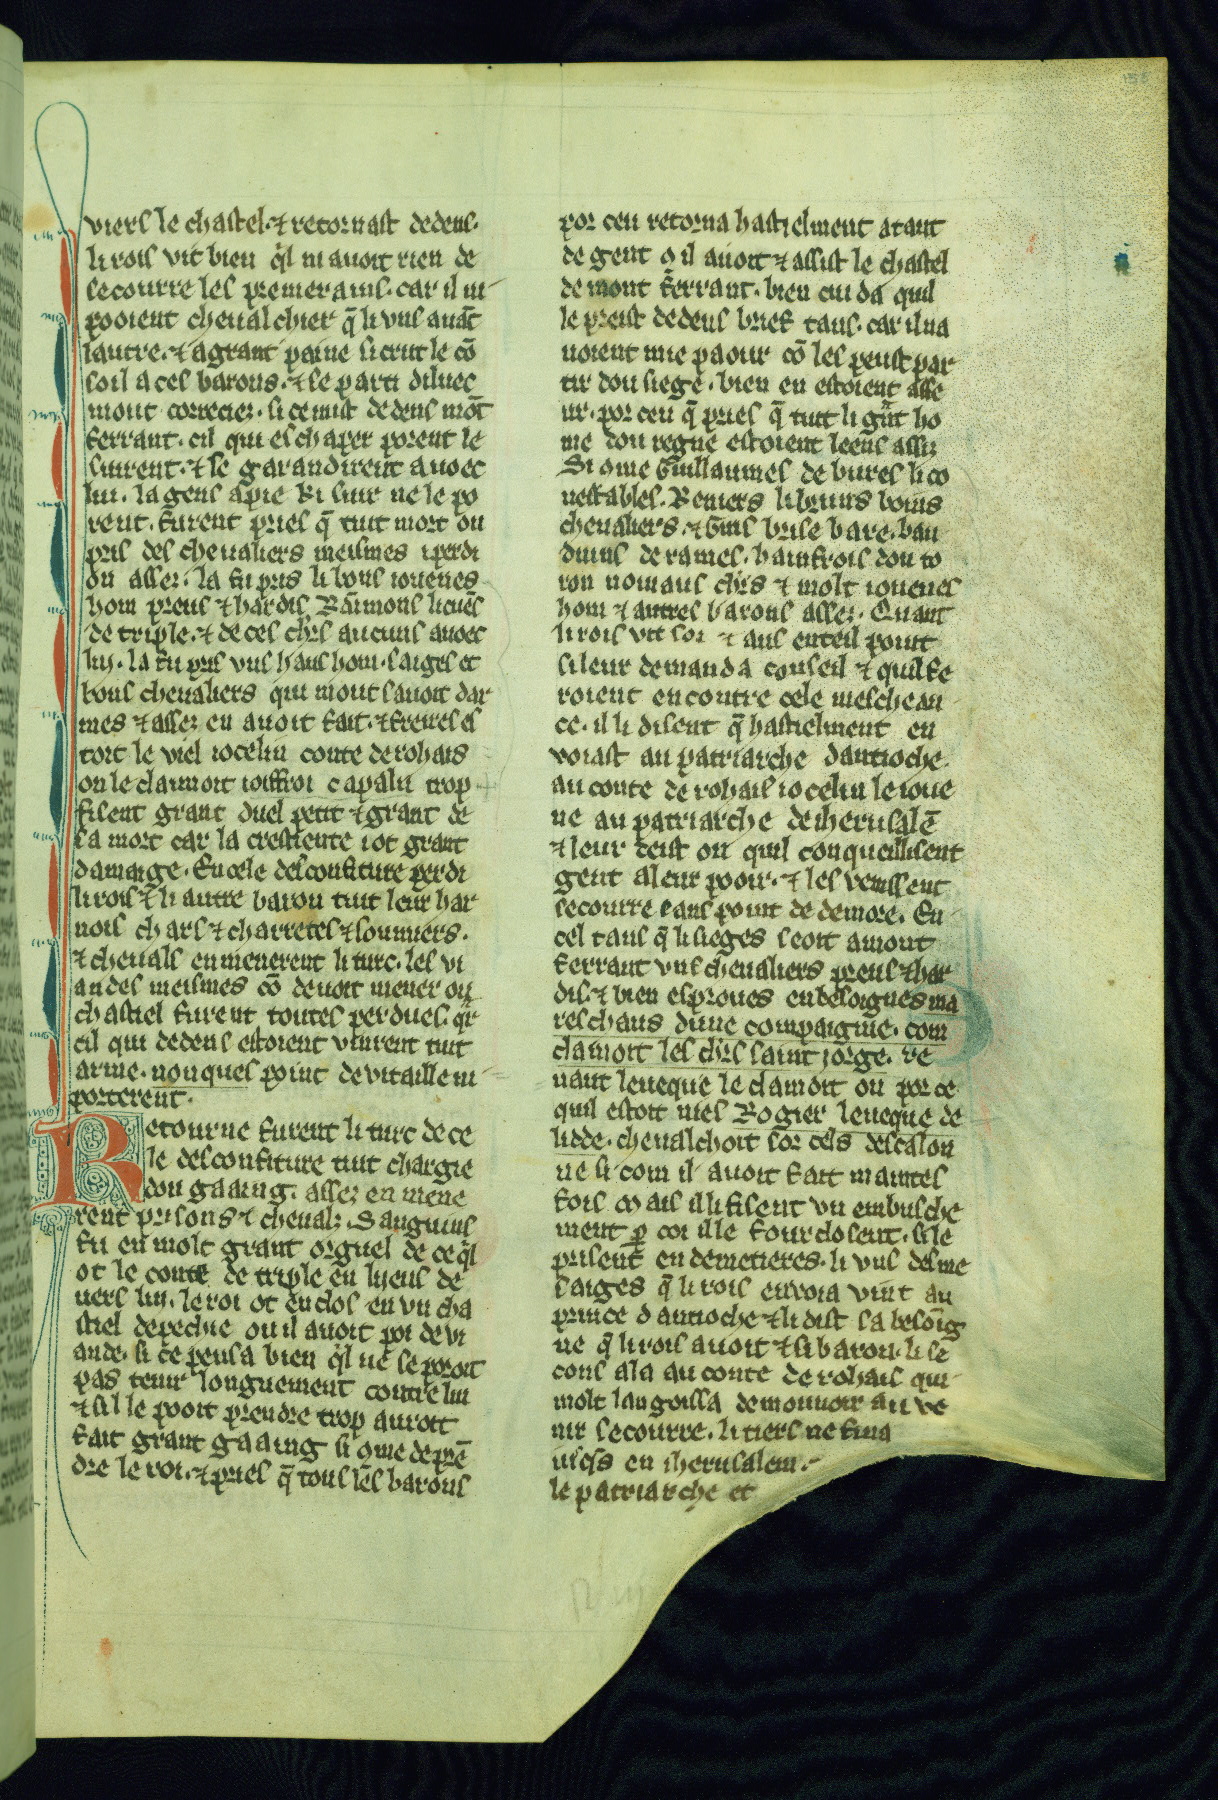 viers le chastel. ⁊ retornast dedens.
li rois vit bien q̃l ni auoit rien de
secourre les premerains. car il ni
pooient cheualchier q̃ li vns auãt
lautre. ⁊ a grant paine si crut le cõ
soil a ces barons. ⁊ se parti diluec
mout correcier. si ce mist dedens mõt
ferrant. cil qui eschaper porent le
siurent. ⁊ se garandirent auoec
lui. la gens a pie ki siur ne le po
rent. furent pries q̃ tuit mort ou
pris des cheualiers meismes i perdi
on assez. la fu pris li bons iouenes
hom preus ⁊ hardis. Raimons li cuẽs
de triple. ⁊ de ces chrs aucuns auoec
lui. la fu pris vns haus hom. saiges et
bons cheualiers qui mout sauoit dar
mes ⁊ assez en auoit fait. ⁊ freires es
tort le viel iocelin conte de rohais
on le clamoit iouffroi capalu trop
fisent grant duel petit ⁊ grant de
sa mort car la crestiente i ot grant
damaige. En cele desconfiture perdi
li rois ⁊ li autre baron tuit leur har
nois chars ⁊ charretes ⁊ soumiers.
⁊ cheuals enmenerent li turc. les vi
andes meismes cõ deuoit mener ou
chastiel furent toutes perdues. qr
cil qui dedens estoient vinrent tuit
arme. nonques point de vitaille ni
porterent.
Retourne furent li turc de ce
le desconfiture tuit chargie
dou gaaing. assez en mene
rent prisons ⁊ cheualz. Sanguins
fu en molt grant orguel de ce q̃l
ot le conte de triple en lyens de
uers lui. le roi ot enclos en vn cha
stiel depeciue ou il auoit poi de vi
ande. si ce pensa bien q̃l ne se poroit
pas tenir longuement contre lui
⁊ sil le pooit prendre trop auroit
fait grant gaaing si cõme de prẽ
dre le roi. ⁊ pries q̃ tous ses barons
por ceu retorna hastielment a tant
de gent q̃ il auoit ⁊ assist le chastel
de mont ferrant. bien cuida quil
le preist dedens brief tans. car il na
uoient mie paour cõ les peust par
tir dou siege. bien en estoient asse
ur. por ceu q̃ pries q̃ tuit li grãt ho
me dou regne estoient leens assiz
Si cõme Guillaumes de bures li co
nestables. Reniers li bruns bons
cheualiers. ⁊ Guis brise bare. bau
duins de rames. hainfrois dou to
ron nomaus chrs ⁊ molt iouenes
hom ⁊ autres barons assez. Quant
li rois vit soi ⁊ aus en teil point
si leur demanda conseil ⁊ quil fe
roient encontre cele mescheau
ce. il li disent q̃ hastielment en
voiast au patriarche dantioche.
au conte de rohais iocelin le ioue
ne au patriarche de iherusalẽ
⁊ leur deist on quil conqueillisent
gent a leur pooir. ⁊ les venissent
secourre sans point de demore. En
cel tans q̃ li sieges seoit a mont
ferrant vns cheualiers preus ⁊ har
dis. ⁊ bien esproues en besoignes ma
reschaus dune compaignie. com
clamoit les chrs saint jorge. de
uant leueque le clamoit on por ce
quil estoit nies Rogier leueque de
lidde. cheualchoit sor cels descalon
ne si com il auoit fait maintes
fois mais il li fisent vn embusche
ment p̲ coi il le fourclosent. si le
prisent en demetieres. li vns des me
saiges q̃ li rois envoia vint au
prince dantioche ⁊ li dist la besoig
ne q̃ li rois auoit ⁊ si baron. li se
cons ala au conte de rohais qui
molt langoissa de mouuoir au ve
nir secourre. li tiers ne fina
iusq̃s en iherusalem.
le patriarche et